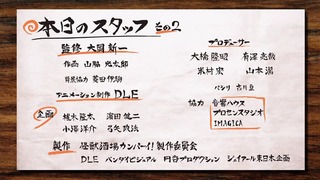 本日のスタッフ その2
監修 大岡新一
作画 山脇光太郎
背景協力 菱田伊駒
アニメーション制作 DLE
企画
植木隆太 濱田健二
小澤洋介
製作 怪獣酒場カンパーイ!製作委員会
DLE バンダイビジュアル 円谷プロダクション ジェイアール東日本企画
プロデューサー
大橋隆昭
米村宏 山本潔
協力 音響ハウス
プロセンスタジオ
IMAGICA